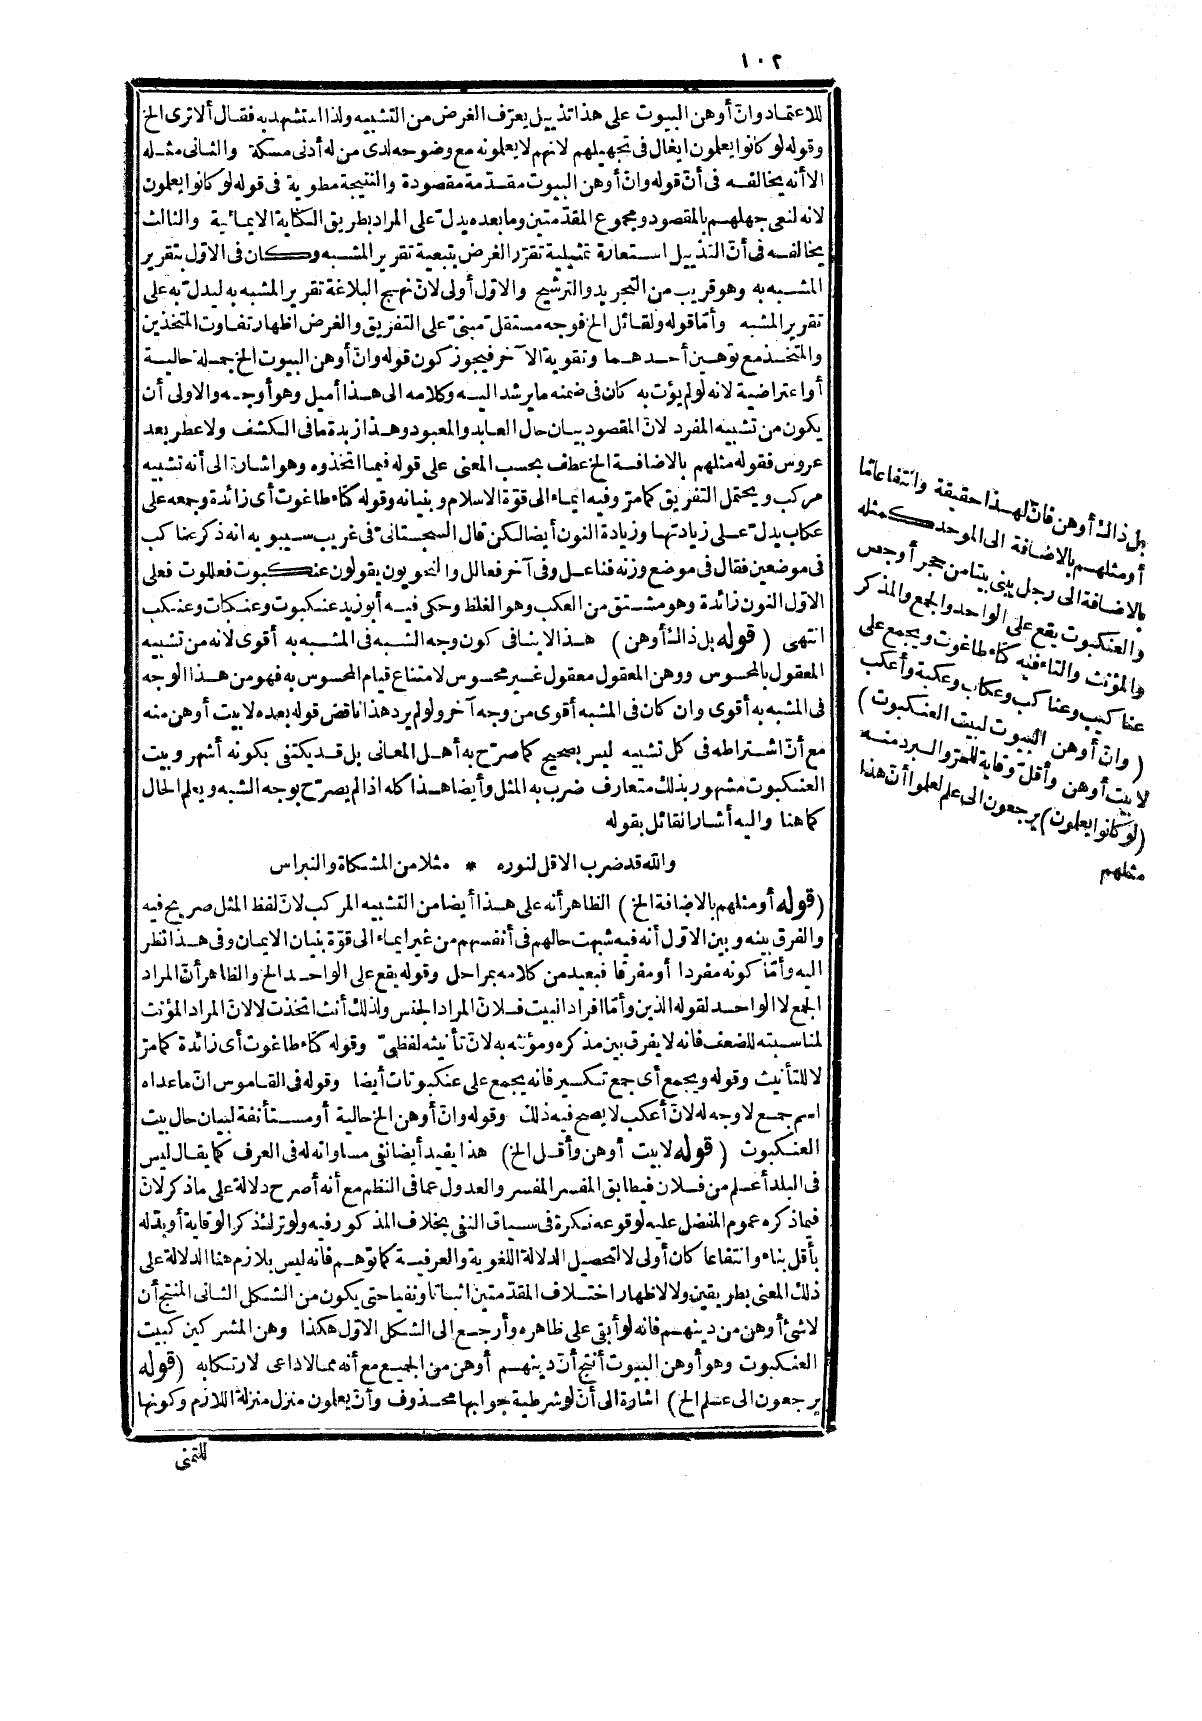 ١٠٢
للاعتماد وانّ أوهن البيوت على هذا تذييل يعرّف الغرض من التشبيه ولذا استشهد به فقال ألا ترى الخ
وقوله لو كانوا يعلمون ايغال فى تجهيلهم لانهم لا يعلمونه مع وضوحه لدى من له أدنى مسكة والثانى مثله
الا أنه يخالفه فى أنّ قوله وانّ أوهن البيوت مقدّمة مقصودة والنتيجة مطوية فى قوله لو كانوا يعلمون
لانه لنعى جهلهم بالمقصود ومجموع المقدّمتين وما بعده يدلّ على المراد بطريق الكناية الايمائية والثالث
يخالفه فى أنّ التذييل استعارة تمثيلية تقرّر الغرض بتبعية تقرير المشبه وكان فى الاوّل بتقرير
المشبه به وهو قريب من التجريد والترشيح والاوّل أولى لانّ نهج البلاغة تقرير المشبه به ليدلّ به على
تقرير المشبه وأمّا قوله ولقائل الخ فوجه مستقلّ مبنىّ على التفريق والغرض اظهار تفاوت المتخذين
والمتخذ مع توهين أحدهما وتقوية الآخر فيجوز كون قوله وانّ أوهن البيوت الخ جملة حالية
أو اعتراضية لانه لو لم يؤت به كان فى ضمنه ما يرشد اليه وكلامه الى هذا أميل وهو أوجه والاولى أن
يكون من تشبيه المفرد لانّ المقصود بيان حال العابد والمعبود وهذا زبدة ما فى الكشف ولا عطر بعد
عروس فقوله مثلهم بالاضافة الخ عطف بحسب المعنى على قوله فيما اتخذوه وهو اشارة الى أنه تشبيه
مركب ويحتمل التفريق كما مرّ وفيه ايماء الى قوّة الاسلام وبنيانه وقوله كتاء طاغوت أى زائدة وجمعه على
عكاب يدلّ على زيادتها وزيادة النون أيضا لكن قال السجستانىّ فى غريب سيبويه انه ذكر عناكب
فى موضعين فقال فى موضع وزنه فناعل وفى آخر فعالل والنحويون يقولون عنكبوت فعللوت فعلى
الاوّل النون زائدة وهو مشتق من العكب وهو الغلظ وحكى فيه أبو زيد عنكبوت وعنكبات وعنكب
انتهى (قوله بل ذاك أوهن) هذا لا ينافى كون وجه الشبه فى المشبه به أقوى لانه من تشبيه
المعقول بالمحسوس ووهن المعقول معقول غير محسوس لامتناع قيام المحسوس به فهو من هذا الوجه
فى المشبه به أقوى وان كان فى المشبه أقوى من وجه آخر ولو لم يرد هذا ناقض قوله بعده لا بيت أوهن منه
مع أنّ اشتراطه فى كل تشبيه ليس بصحيح كما صرّح به أهل المعانى بل قد يكتفى بكونه أشهر وبيت
العنكبوت مشهور بذلك متعارف ضرب به المثل وأيضا هذا كله اذا لم يصرّح بوجه الشبه ويعلم الحال
كما هنا واليه أشار القائل بقوله
والله قد ضرب الاقل لنوره * مثلا من المشكاة والنبراس
(قوله أو مثلهم بالاضافة الخ) الظاهر أنه على هذا أيضا من التشبيه المركب لانّ لفظ المثل صريح فيه
والفرق بينه وبين الاوّل أنه فيه شبهت حالهم فى أنفسهم من غير ايماء الى قوّة بنيان الايمان وفى هذا نظر
اليه وأمّا كونه مفردا أو مفرقا فبعيد من كلامه بمراحل وقوله يقع على الواحد الخ والظاهر أنّ المراد
الجمع لا الواحد لقوله الذين وأمّا افراد البيت فلانّ المراد الجنس ولذلك أنث اتخذت لا لانّ المراد المؤنث
لمناسبته للضعف فانه لا يفرق بين مذكره ومؤنثه به لانّ تأنيثه لفظىّ وقوله كتاء طاغوت أى زائدة كما مرّ
لا للتأنيث وقوله ويجمع أى جمع تكسير فانه يجمع على عنكبوتات أيضا وقوله فى القاموس انّ ما عداه
اسم جمع لا وجه له لانّ أعكب لا يصح فيه ذلك وقوله وانّ أوهن الخ حالية أو مستأنفة لبيان حال بيت
العنكبوت (قوله لا بيت أوهن وأقل الخ) هذا يفيد أيضا نفى مساواته له فى العرف كما يقال ليس
فى البلد أعلم من فلان فيطابق المفسر المفسر والعدول عما فى النظم مع أنه أصرح دلالة على ما ذكر لانّ
فيما ذكره عموم المفضل عليه لوقوعه نكرة فى سياق النفى بخلاف المذكور فيه ولو ترك ذكر الوقاية أو بدله
بأقل بناء وانتفاعا كان أولى لا لتحصيل الدلالة اللغوية والعرفية كما توهم فانه ليس بلازم هنا الدلالة على
ذلك المعنى بطريقين ولا لاظهار اختلاف المقدّمتين اثباتا ونفيا حتى يكون من الشكل الثانى المنتج أن
لا شئ أوهن من دينهم فانه لو أبقى على ظاهره وأرجع الى الشكل الاوّل هكذا وهن المشركين كبيت
العنكبوت وهو أوهن البيوت أنتج أنّ دينهم أوهن من الجميع مع أنه مما لا داعى لارتكابه (قوله
يرجعون الى علم الخ) اشارة الى أنّ لو شرطية جوابها محذوف وأنّ يعلمون منزل منزلة اللازم وكونها
للتمنى
بل ذاك أوهن فانّ لهذا حقيقة وانتفاعا مّا
أو مثلهم بالاضافة الى الموحد كمثله
بالاضافة الى رجل بنى بيتا من حجر أو جص
والعنكبوت يقع على الواحد والجمع والمذكر
والمؤنث والتاء فيه كتاء طاغوت ويجمع على
عناكيب وعناكب وعكاب وعكبة وأعكب
(وانّ أوهن البيوت لبيت العنكبوت)
لا بيت أوهن وأقلّ وقاية للحرّ والبرد منه
(لو كانوا يعلمون) يرجعون الى علم لعلموا أنّ هذا
مثلهم